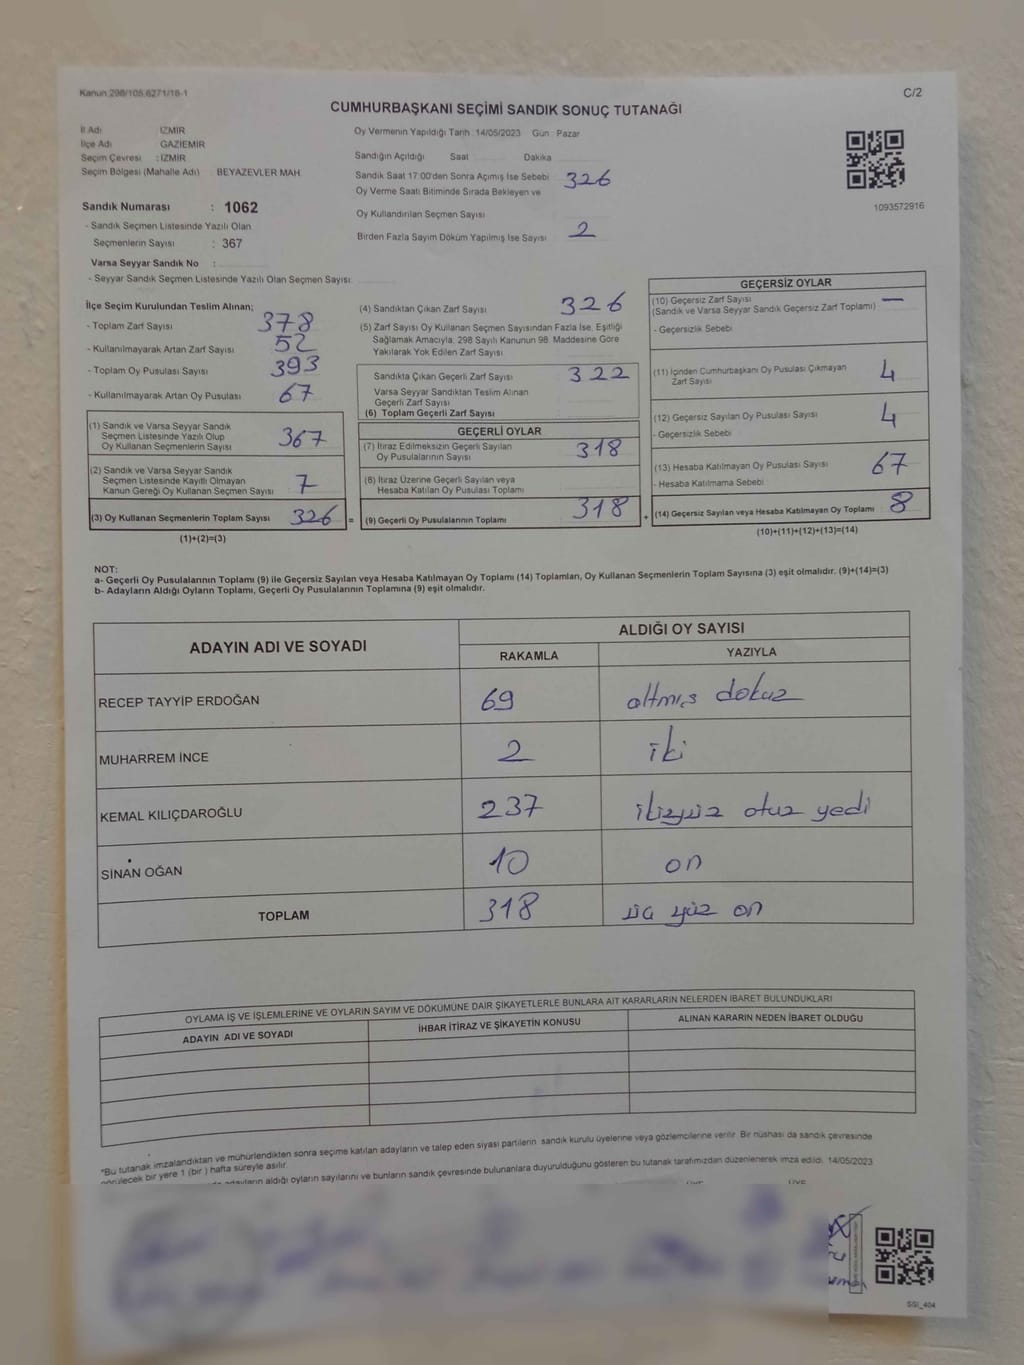 Kanun 298/105,6271/18-1
C/2
CUMHURBAŞKANI SEÇİMİ SANDIK SONUÇ TUTANAĞI
İl Adı : İZMİR
İlçe Adı GAZİEMİR
Seçim Çevresi : İZMİR
Seçim Bölgesi (Mahalle Adı) : BEYAZEVLER MAH.
Sandık Numarası : 1062
- Sandık Seçmen Listesinde Yazılı Olan
Seçmenlerin Sayısı : 367
Varsa Seyyar Sandık No :
- Seyyar Sandık Seçmen Listesinde Yazılı Olan Seçmen Sayısı:
Oy Vermenin Yapıldığı Tarih : 14/05/2023 Gün : Pazar
Sandığın Açıldığı Saat Dakika
Sandık Saat 17:00'den Sonra Açılmış İse Sebebi 326
Oy Verme Saati Bitiminde Sırada Bekleyen ve
Oy Kullandırılan Seçmen Sayısı
Birden Fazla Sayım Döküm Yapılmış İse Sayısı 2
1093572916
İlçe Seçim Kurulundan Teslim Alınan;
- Toplam Zarf Sayısı 378
- Kullanılmayarak Artan Zarf Sayısı 52
- Toplam Oy Pusulası Sayısı 393
- Kullanılmayarak Artan Oy Pusulası 67
(1) Sandık ve Varsa Seyyar Sandık
Seçmen Listesinde Yazılı Olup
Oy Kullanan Seçmenlerin Sayısı 367
(2) Sandık ve Varsa Seyyar Sandık
Seçmen Listesinde Kayıtlı Olmayan
Kanun Gereği Oy Kullanan Seçmen Sayısı 7
(3) Oy Kullanan Seçmenlerin Toplam Sayısı 326 =
(1)+(2)=(3)
(4) Sandıktan Çıkan Zarf Sayısı 326
(5) Zarf Sayısı Oy Kullanan Seçmen Sayısından Fazla İse, Eşitliği
Sağlamak Amacıyla, 298 Sayılı Kanunun 98. Maddesine Göre
Yakılarak Yok Edilen Zarf Sayısı
Sandıkta Çıkan Geçerli Zarf Sayısı 322
Varsa Seyyar Sandıktan Teslim Alınan
Geçerli Zarf Sayısı
(6) Toplam Geçerli Zarf Sayısı
GEÇERLİ OYLAR
(7) İtiraz Edilmeksizin Geçerli Sayılan
Oy Pusulalarının Sayısı 318
(8) İtiraz Üzerine Geçerli Sayılan veya
Hesaba Katılan Oy Pusulası Toplamı
(9) Geçerli Oy Pusulalarının Toplamı 318 +
GEÇERSİZ OYLAR
(10) Geçersiz Zarf Sayısı —
(Sandık ve Varsa Seyyar Sandık Geçersiz Zarf Toplamı)
- Geçersizlik Sebebi
(11) İçinden Cumhurbaşkanı Oy Pusulası Çıkmayan
Zarf Sayısı 4
(12) Geçersiz Sayılan Oy Pusulası Sayısı 4
- Geçersizlik Sebebi
(13) Hesaba Katılmayan Oy Pusulası Sayısı 67
- Hesaba Katılmama Sebebi
(14) Geçersiz Sayılan veya Hesaba Katılmayan Oy Toplamı 8
(10)+(11)+(12)+(13)=(14)
NOT:
a- Geçerli Oy Pusulalarının Toplamı (9) ile Geçersiz Sayılan veya Hesaba Katılmayan Oy Toplamı (14) Toplamları, Oy Kullanan Seçmenlerin Toplam Sayısına (3) eşit olmalıdır. (9)+(14)=(3)
b- Adayların Aldığı Oyların Toplamı, Geçerli Oy Pusulalarının Toplamına (9) eşit olmalıdır.
ADAYIN ADI VE SOYADI ALDIĞI OY SAYISI
RAKAMLA YAZIYLA
RECEP TAYYİP ERDOĞAN 69 altmış dokuz
MUHARREM İNCE 2 iki
KEMAL KILIÇDAROĞLU 237 ikiyüz otuz yedi
SİNAN OĞAN 10 on
TOPLAM 318 üç yüz on
OYLAMA İŞ VE İŞLEMLERİNE VE OYLARIN SAYIM VE DÖKÜMÜNE DAİR ŞİKAYETLERLE BUNLARA AİT KARARLARIN NELERDEN İBARET BULUNDUKLARI
ADAYIN ADI VE SOYADI İHBAR İTİRAZ VE ŞİKAYETİN KONUSU ALINAN KARARIN NEDEN İBARET OLDUĞU
*Bu tutanak imzalandıktan ve mühürlendikten sonra seçime katılan adayların ve talep eden siyasi partilerin sandık kurulu üyelerine veya gözlemcilerine verilir. Bir nüshası da sandık çevresinde
görülecek bir yere 1 (bir ) hafta süreyle asılır.
adayların aldığı oyların sayılarını ve bunların sandık çevresinde bulunanlara duyurulduğunu gösteren bu tutanak tarafımızdan düzenlenerek imza edildi. 14/05/2023
SSİ_404